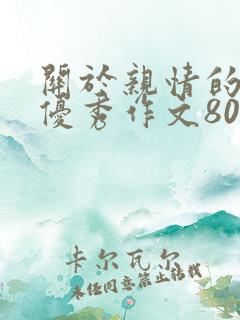 關於親情的
優秀作文80
卡尔瓦尔
未经同意禁止转载